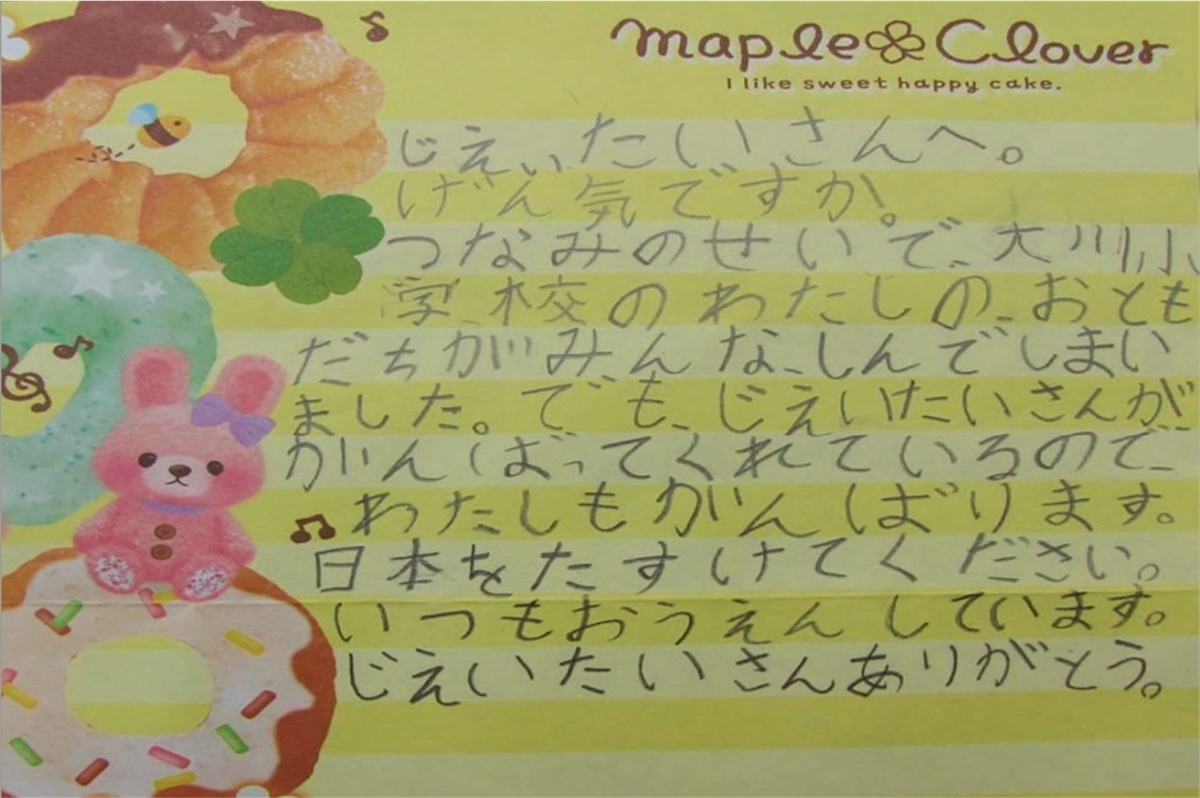 maple Clover
I like sweet happy cake.
じえいたいさんへ。
げん気ですか。
つなみのせいで、大川小
学校のわたしの、おとも
だちがみんな、しんでしまい
ました。でも、じえいたいさんが、
がんばってくれているので、
わたしもがんばります。
日本をたすけてください。
いつもおうえんしています。
じえいたいさんありがとう。